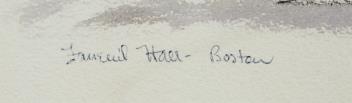 Faneuil Hall - Boston